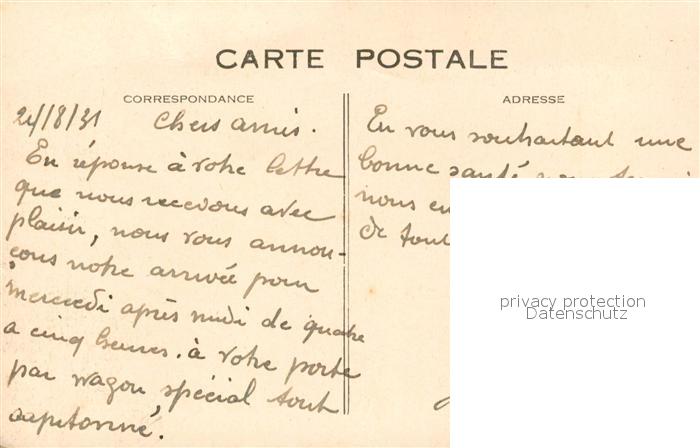 CARTE POSTALE
CORRESPONDANCE
24/8/31 Chers amis.
En réponse à votre lettre
que nous recevons avec
plaisir, nous vous annon-
çons notre arrivée pour
mercredi après midi de quatre
a cinq heures. à votre porte
par wagon spécial tout
capitonné.
ADRESSE
En vous souhaitant une
bonne santé
nous en
de tout
privacy protection
Datenschutz